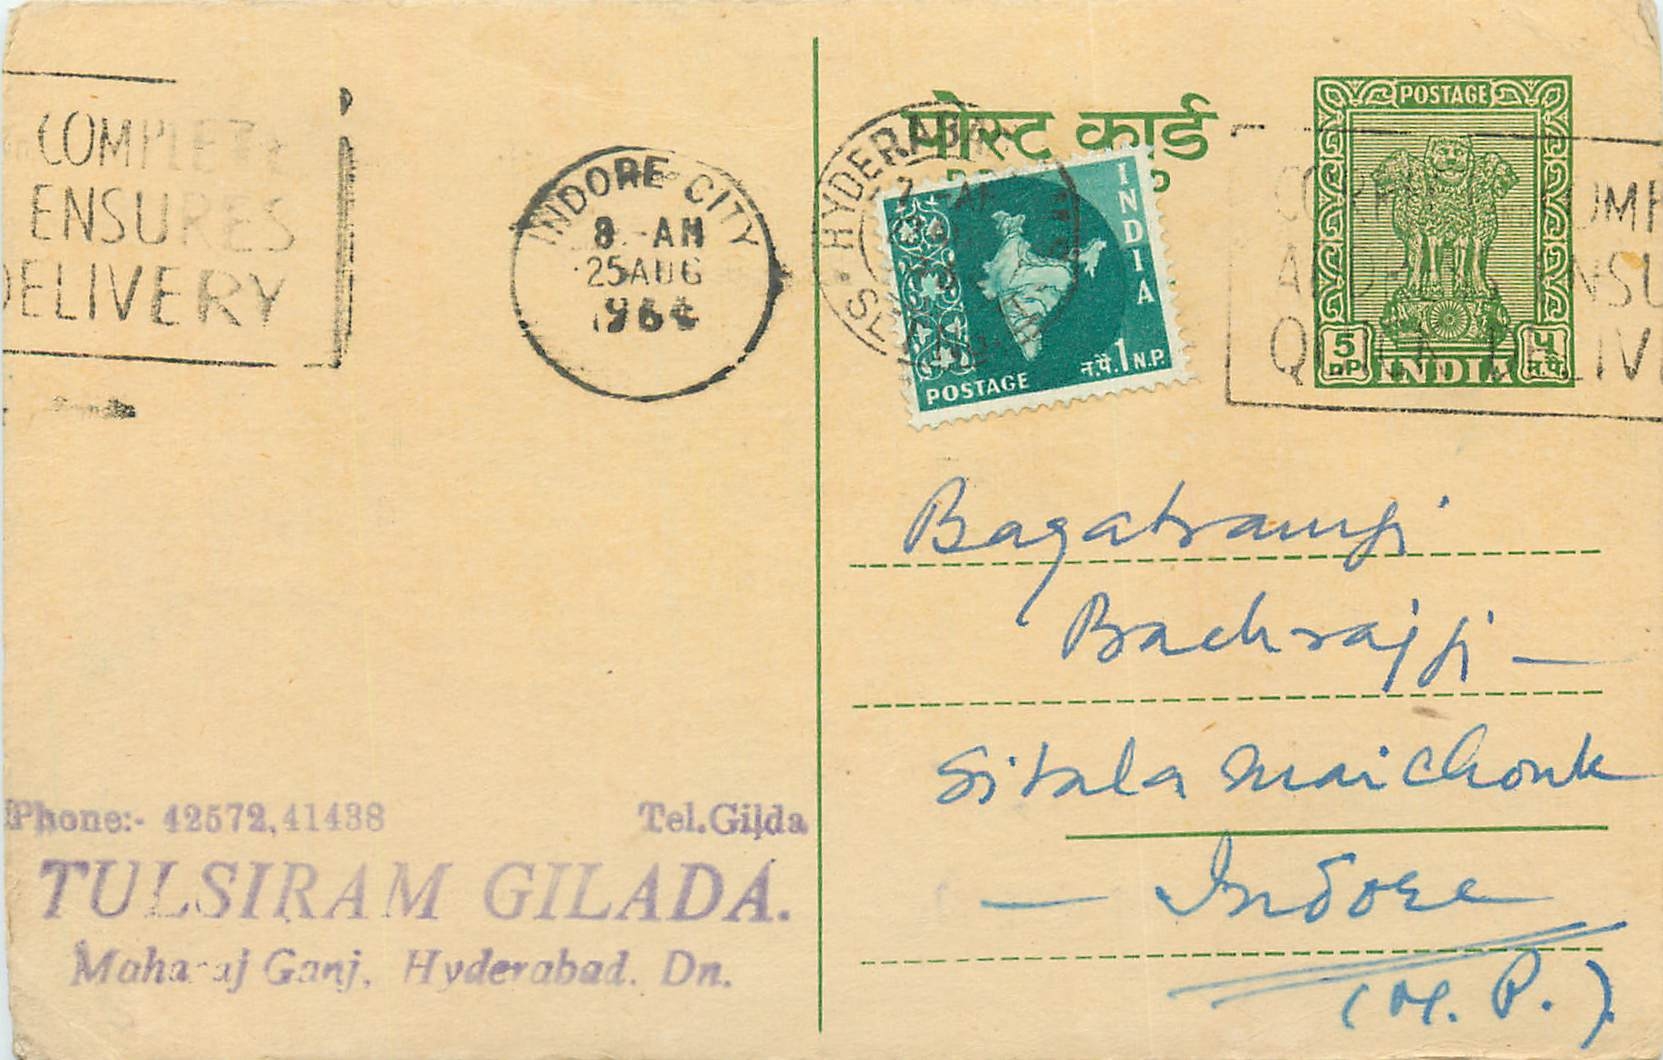 COMPLETE
ENSURES
DELIVERY
INDORE CITY
8 - AM
25 AUG
1964
पोस्ट कार्ड
HYDERABAD
INDIA
न.पै. 1 N.P.
POSTAGE
POSTAGE
5
nP
INDIA
५
न.पै.
QUICK DELIV
Bagatramji
Bachrajji —
Sitala mai Chouk
— Indore
(M. P.)
Phone:- 42572,41438 Tel.Gilda
TULSIRAM GILADA.
Maharaj Ganj, Hyderabad. Dn.